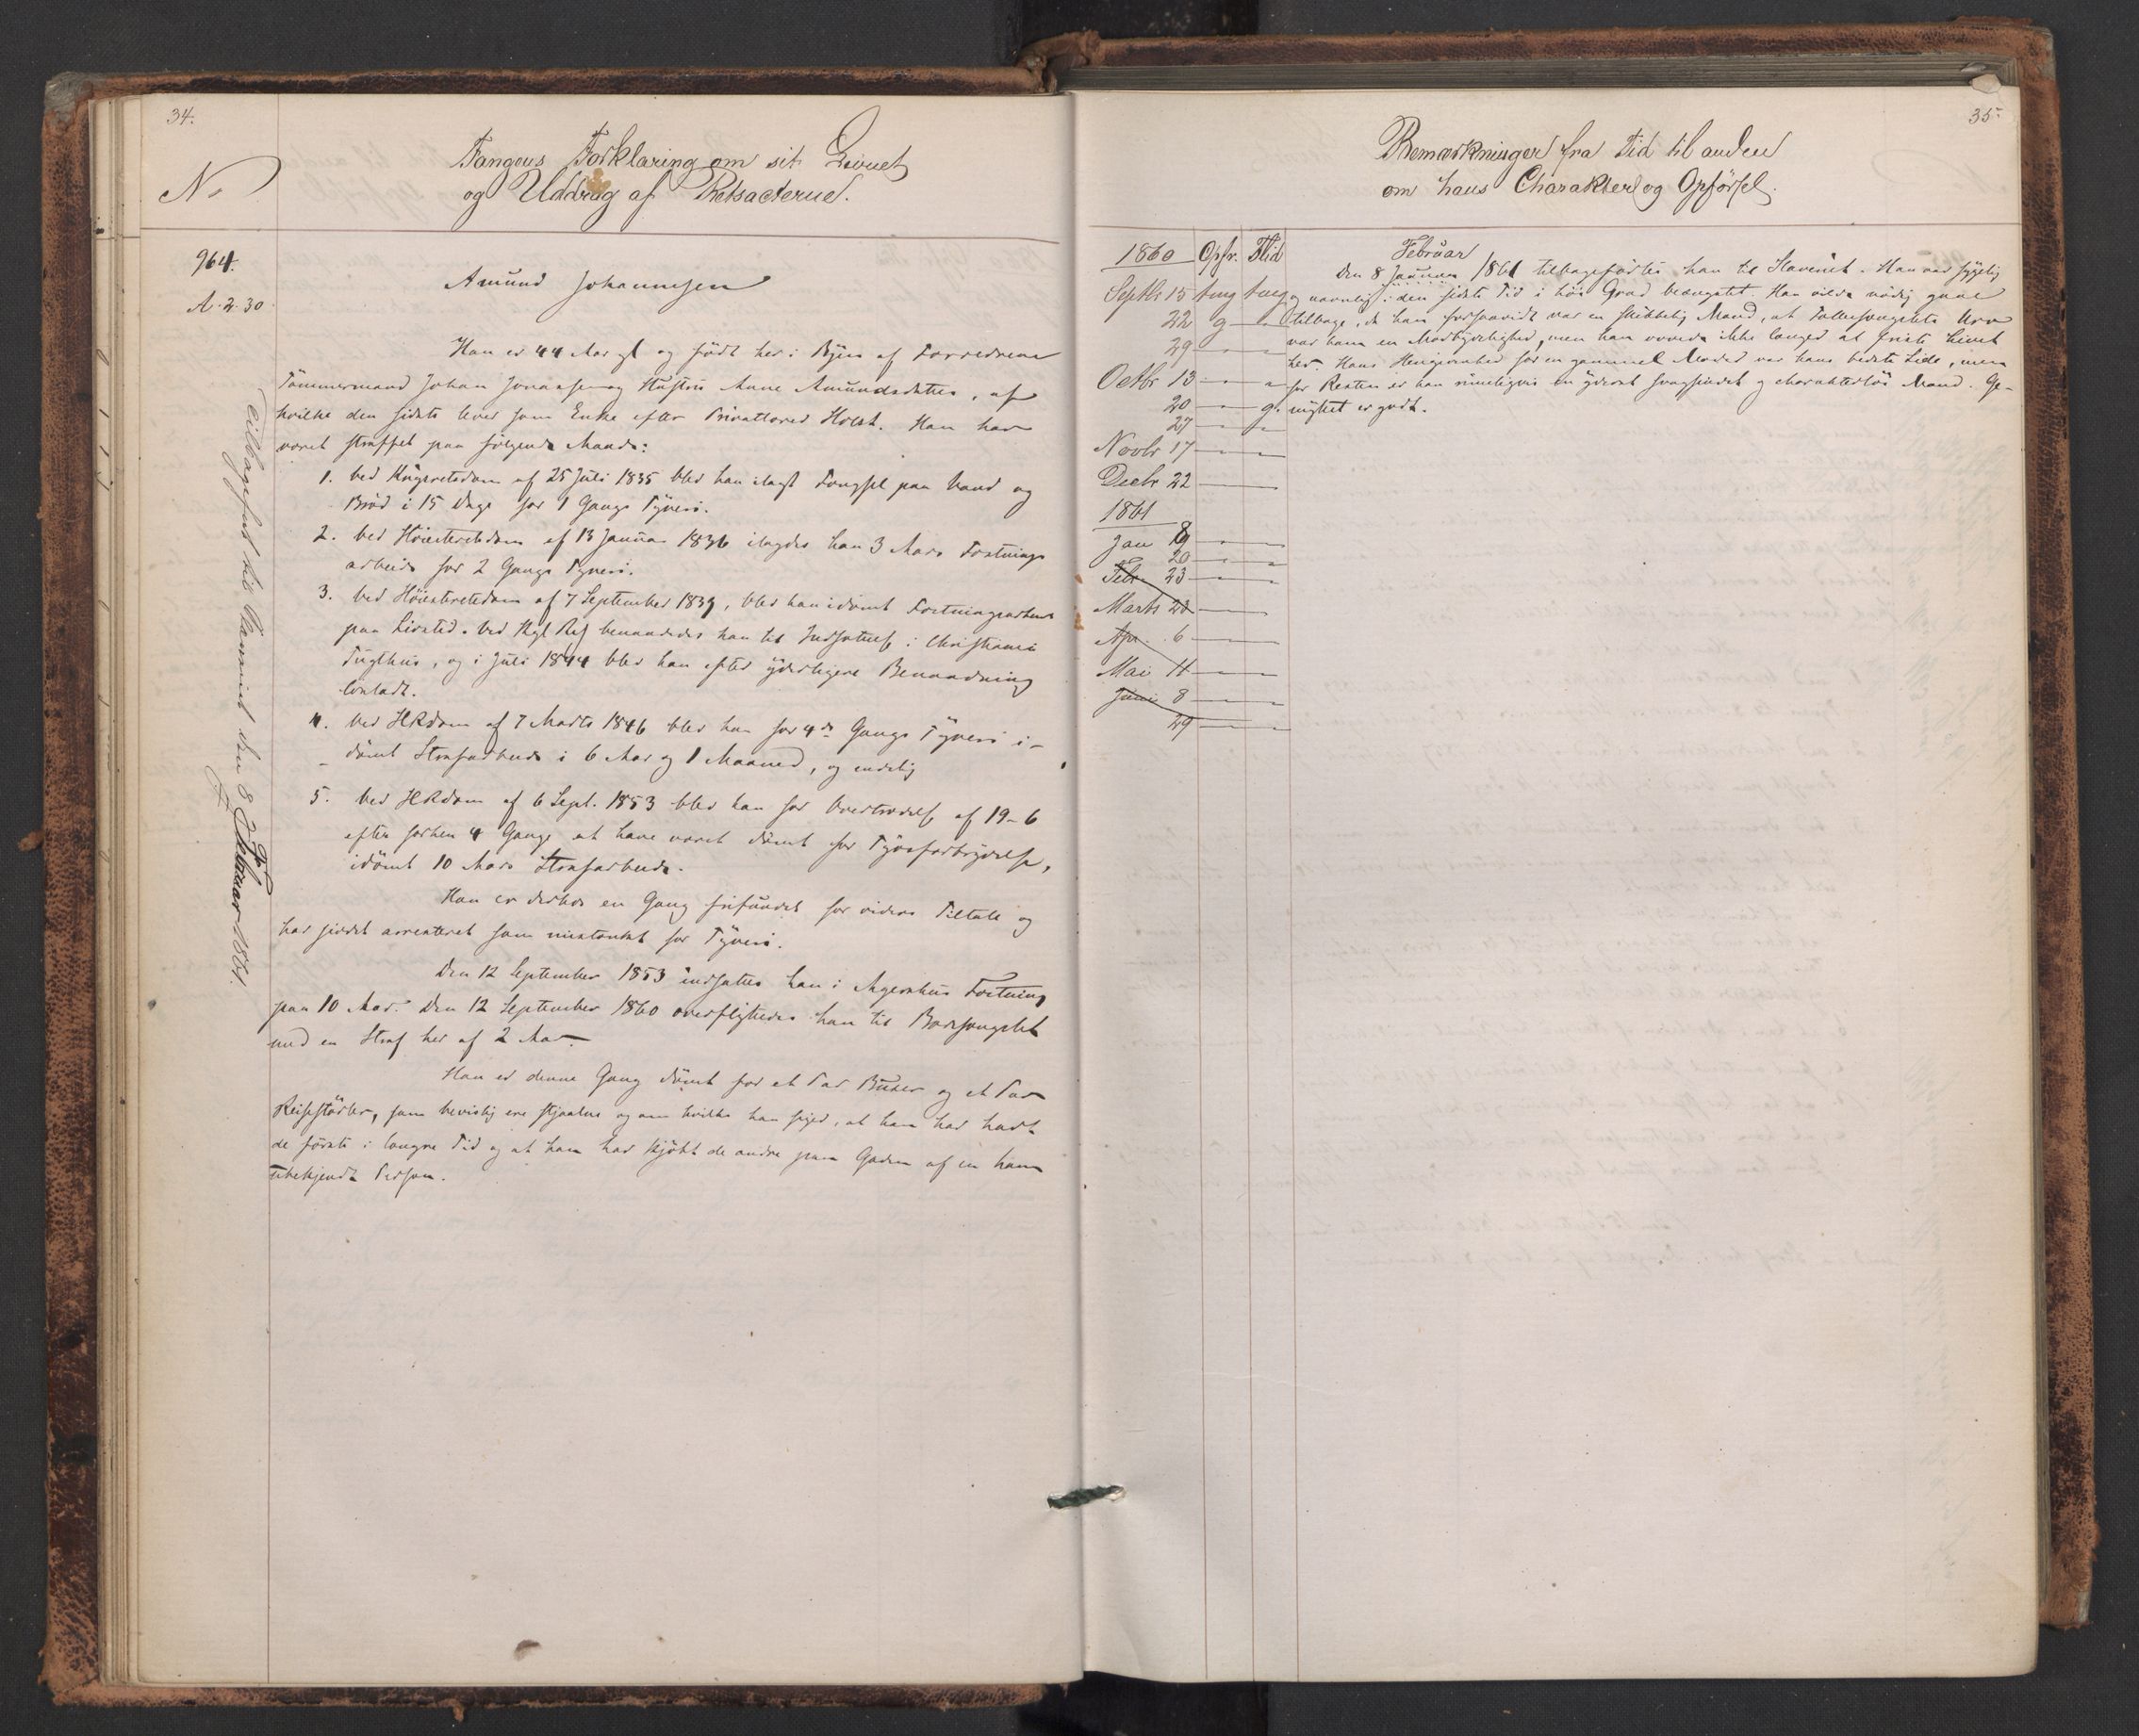 34.
No
Fangens Forklaring om sit Levnet
og Uddrag af Retsacterne.
964.
A. 2. 30
Amund Johannesen
Han er 44 Aar gl og født her i Byen af Forældrene
Tømmermand Johan Jonassen og Hustru Anne Amundsdatter, af
hvilke den sidste lever som Enke efter Holst. Han har
været straffet paa følgende Maade:
1. Ved af 25 Juli 1835 blev han ilagt Fængsel paa Vand og
Brød i 15 Dage for 1 Gangs Tyveri.
2. Ved Høiesteretsdom af 13 Januar 1836 ilagdes han 3 Aars Fæstnings
arbeide for 2 Gangs Tyveri.
3. Ved Høiesteretsdom af 7 September 1839, blev han idømt Fæstningsarbeide
paa Livstid. Ved Kgl Res benaadedes han til Indsættelse i Christiania
Tugthus, og i Juli 1844 blev han efter yderligere Benaadning
løsladt.
4. Ved HRdom af 7 Marts 1846 blev han for 4de Gangs Tyveri i-
dømt Strafarbeide i 6 Aar og 1 Maaned, og endelig
5. Ved HRdom af 6 Sept. 1853 blev han for Overtrædelse af 19-6
efter forhen 4 Gange at have været dømt for Tyvsforbrydelse,
idømt 10 Aars Strafarbeide.
Han er derhos en Gang frifundet for videre Tiltale og
har siddet arresteret som mistænkt for Tyveri.
Den 12 September 1853 indsattes han i Agershus Fæstning
paa 10 Aar. Den 12 September 1860 overflyttedes han til Bodsfængslet
med en Straf her af 2 Aar.
Han er denne Gang dømt for et Par Buxer og et Par
Reisestøvler, som bevislig ere stjaalne og om hvilke han siger, at han har havt
de første i længre Tid og at han har kjøbt de andre paa Gaden af en ham
ubekjendt Person.
Tilbageført til Slaveriet den 8 Februar 1861.
35.
Bemærkninger fra Tid til anden
om hans Charakter og Opførsel.
1860 Opfr. Flid
Septbr 15 tmg tmg
22 g
29
Octbr 13
20 g.
27
Novbr 17
Decbr 22
1861
Jan 19
20
Febr 23
Marts 23
Apr. 6
Mai 11
Juni 8
29
Februar
Den 8 Januar 1861 tilbageførtes han til Slaveriet. Han var sygelig
og navnlig i den sidste Tid i høi Grad beængstet. Han vilde nødig gaae
tilbage, da han forsaavidt var en skikkelig Mand, at Fællesfængslets
var ham en Modbydelighed, men han vovede ikke længer at friste Livet
her. Hans Hengivenhed for en gammel Moder var hans bedste Side, men
for Resten er han rimeligvis en yderst svagsindet og charakterløs Mand. Ge-
myttet er godt.